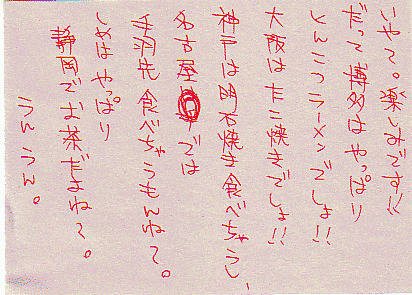 いやぁ。楽しみです!!
だって博多はやっぱり
とんこつラーメンでしょ!!
大阪はたこ焼きでしょ!!
神戸は明石焼き食べちゃうし、
名古屋では
手羽先食べちゃうもんねぇ。
しめはやっぱり
静岡でお茶だよねぇ。
うんうん。